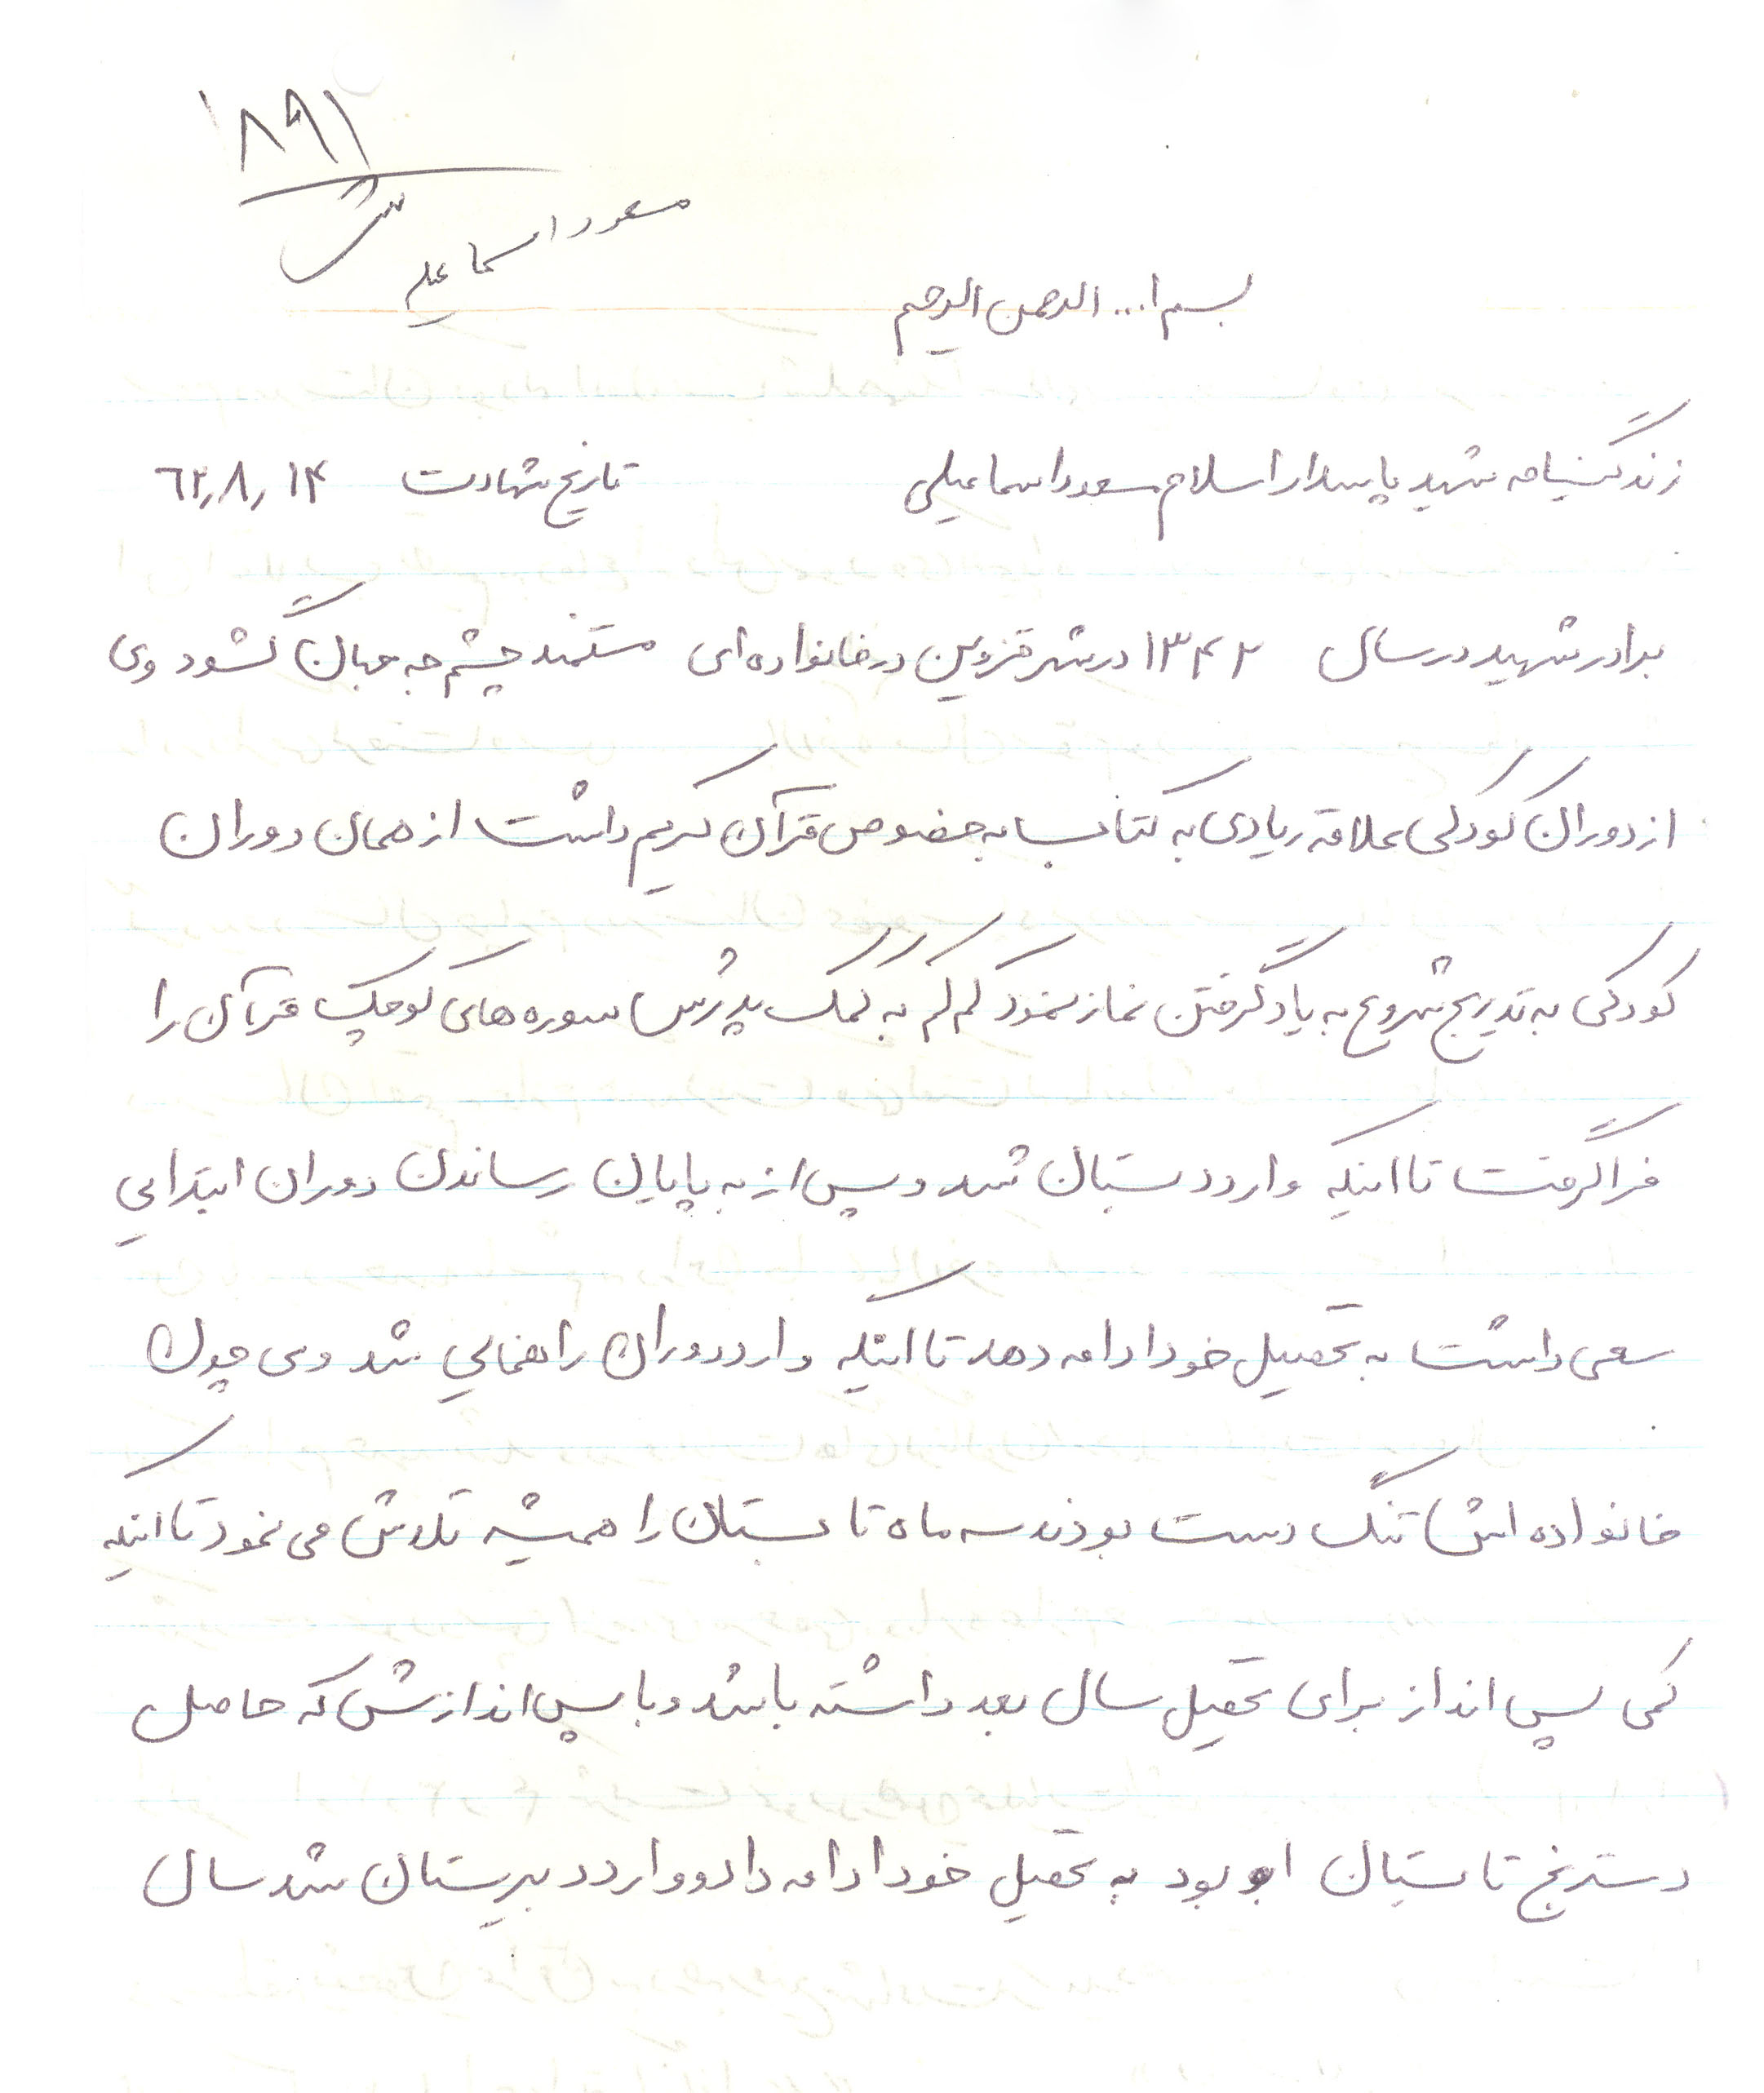 ۱۸۹۱
ش
مسعود اسماعیلی
بسم ا... الرحمن الرحیم
زندگینامه شهید پاسدار اسلام مسعود اسماعیلی تاریخ شهادت ۶۲٫۸٫۱۴
برادر شهید در سال ۱۳۴۲ در شهر قزوین در خانواده ای مستمند چشم به جهان گشود وی
از دوران کودکی علاقه زیادی به کتاب به خصوص قرآن کریم داشت از همان دوران
کودکی به تدریج شروع به یادگرفتن نماز نمود کم کم به کمک پدرش سوره های کوچک قرآن را
فراگرفت تا اینکه وارد دبستان شد و پس از به پایان رساندن دوران ابتدایی
سعی داشت به تحصیل خود ادامه دهد تا اینکه وارد دوران راهنمایی شد وی چون
خانواده اش تنگ دست بودند سه ماه تابستان را همیشه تلاش می نمود تا اینکه
کمی پس انداز برای تحصیل سال بعد داشته باشد و با پس اندازش که حاصل
دسترنج تابستان او بود به تحصیل خود ادامه داد و وارد دبیرستان شد سال